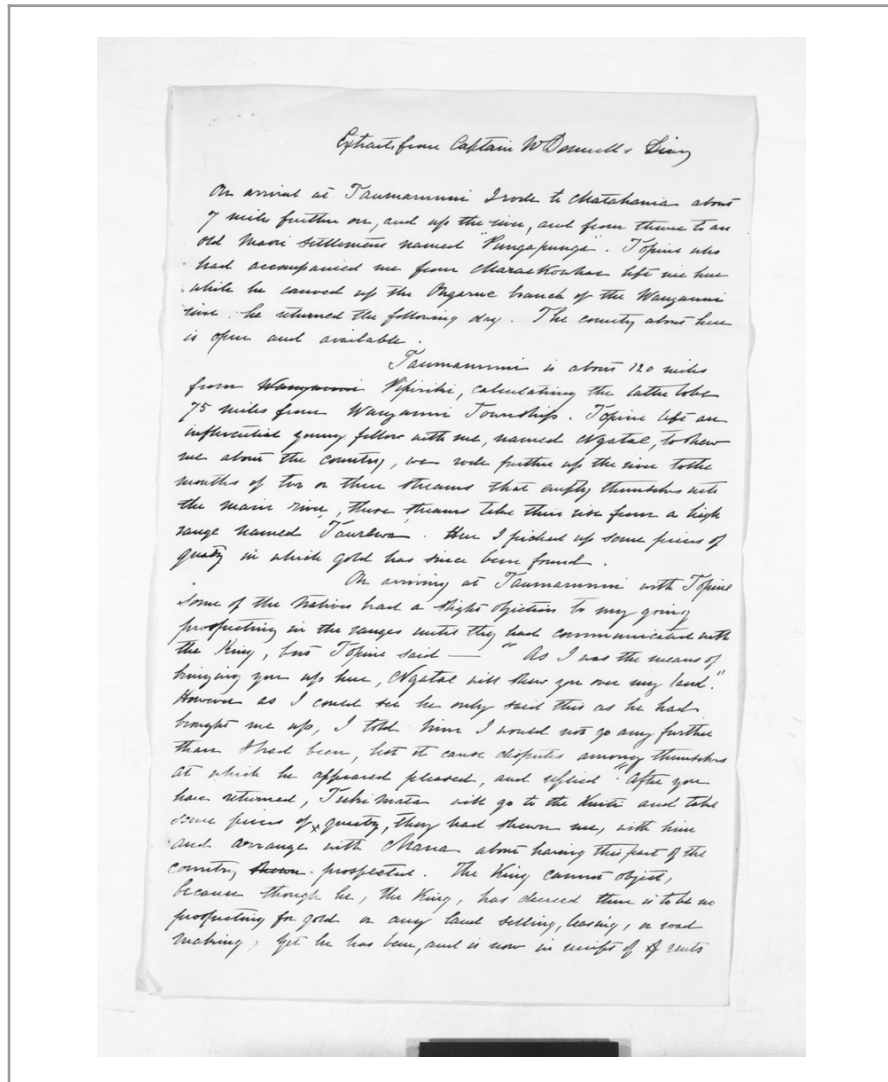 Extracts from Captain McDonnell's Diary
On arrival at Taumarunui I rode to Matahania about
7 miles further on, and up the river, and from thence to an
old Maori settlement named "Pungapunga". Topine who
had accompanied me from Maraekowhai left me here
while he canoed up the Ongarue branch of the Wanganui
river. he returned the following day. The country about here
is open and available.
Taumarunui is about 120 miles
from Wanganui Pipiriki, calculating the latter to be
75 miles from Wanganui Township. Topine left an
influential young fellow with me, named Ngatai, to shew
me about the country, we rode further up the river to the
mouths of two or three streams that empty themselves into
the main river, these streams take their rise from a high
range named Taurewa. Here I picked up some pieces of
quartz in which gold has since been found.
On arriving at Taumarunui with Topine
some of the Natives had a slight objection to my going
prospecting in the ranges until they had communicated with
the King, but Topine said — "As I was the means of
bringing you up here, Ngatai will shew you over my land."
However as I could see he only said this as he had
brought me up, I told him I would not go any further
than I had been, lest it cause disputes among themselves
at which he appeared pleased, and replied "After you
have returned, Tukimata will go to the Kuiti and take
some pieces of x quartz, they had shewn me, with him
and arrange with Manga about having this part of the
country shewn prospected. The King cannot object,
because though he, the King, has decreed there is to be no
prospecting for gold or any land selling, leasing, or road
making, yet he has been, and is now in receipt of rents